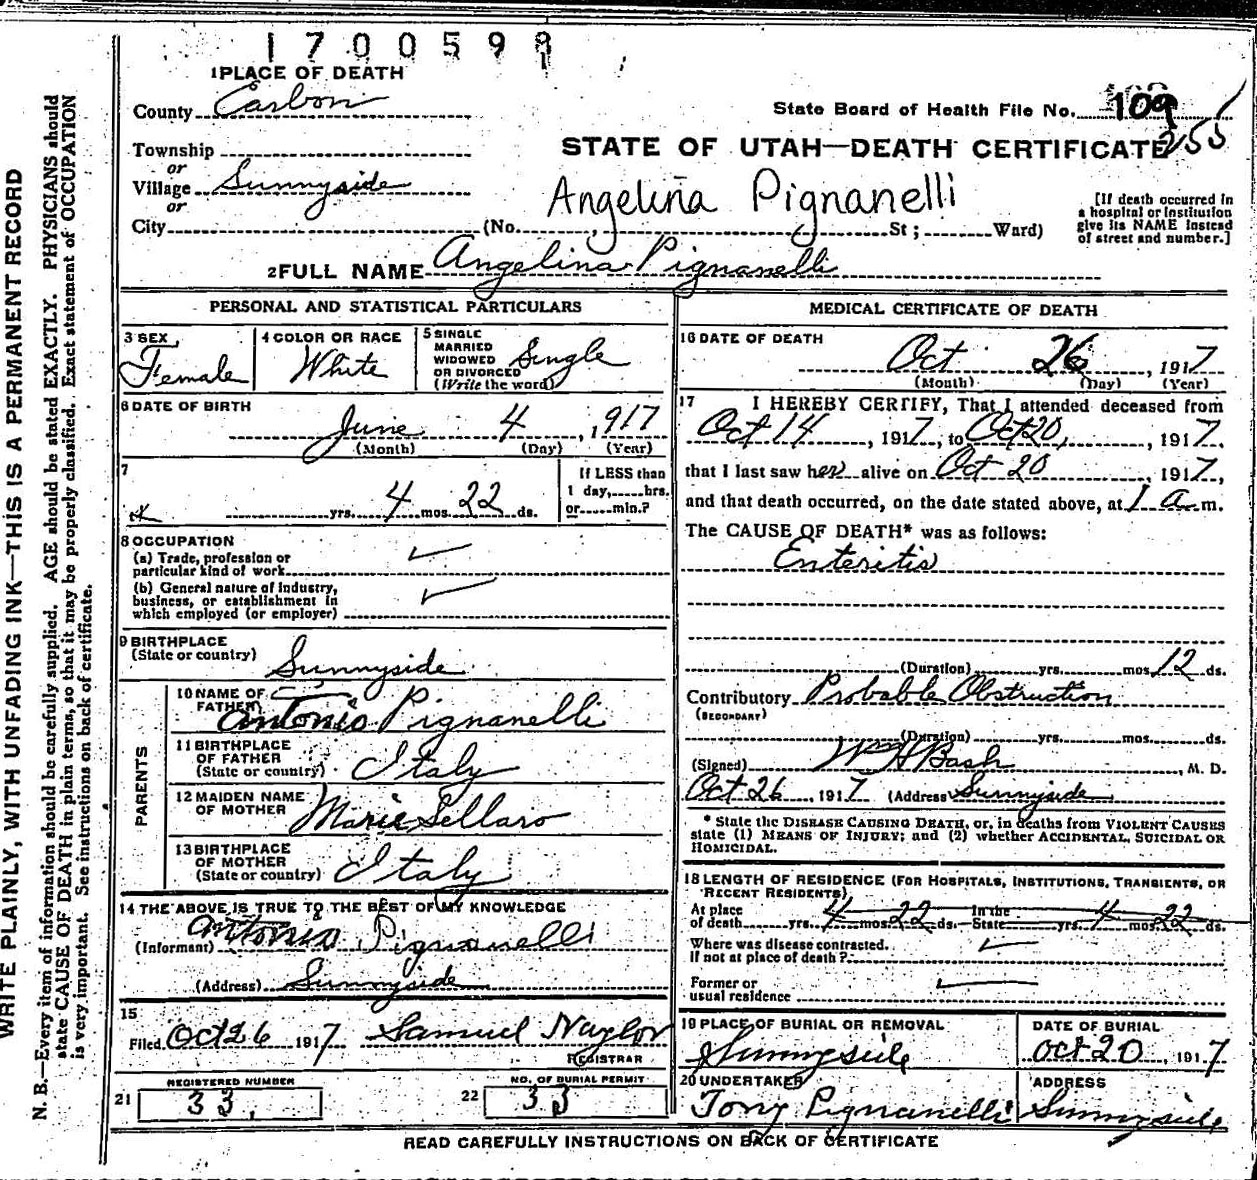 1700599
1 PLACE OF DEATH
County Carbon
State Board of Health File No. 109
255
Township
or
Village Sunnyside
or
City (No. St; Ward)
STATE OF UTAH—DEATH CERTIFICATE
Angelina Pignanelli
[If death occurred in
a hospital or institution
give its NAME instead
of street and number.]
2 FULL NAME Angelina Pignanelli
PERSONAL AND STATISTICAL PARTICULARS
3 SEX
Female
4 COLOR OR RACE
White
5 SINGLE
MARRIED
WIDOWED
OR DIVORCED
(Write the word)
Single
6 DATE OF BIRTH
June 4, 1917
(Month) (Day) (Year)
7
yrs. 4 mos. 22 ds.
If LESS than
1 day,.....hrs.
or.....min.?
8 OCCUPATION
(a) Trade, profession or
particular kind of work
(b) General nature of industry,
business, or establishment in
which employed (or employer)
9 BIRTHPLACE
(State or country)
Sunnyside
PARENTS
10 NAME OF
FATHER
Antonio Pignanelli
11 BIRTHPLACE
OF FATHER
(State or country)
Italy
12 MAIDEN NAME
OF MOTHER
Marie Sellaro
13 BIRTHPLACE
OF MOTHER
(State or country)
Italy
14 THE ABOVE IS TRUE TO THE BEST OF MY KNOWLEDGE
(Informant) Antonio Pignanelli
(Address) Sunnyside
15
Filed Oct 26 1917 Samuel Naylor
REGISTRAR
21 REGISTERED NUMBER
33
22 NO. OF BURIAL PERMIT
33
MEDICAL CERTIFICATE OF DEATH
16 DATE OF DEATH
Oct 26, 1917
(Month) (Day) (Year)
17 I HEREBY CERTIFY, That I attended deceased from
Oct 14, 1917, to Oct 20, 1917,
that I last saw her alive on Oct 20, 1917,
and that death occurred, on the date stated above, at 1 a m.
The CAUSE OF DEATH* was as follows:
Enteritis
(Duration) yrs. mos. 12 ds.
Contributory Probable Obstruction
(SECONDARY)
(Duration) yrs. mos. ds.
(Signed) Wm H Bash, M. D.
Oct 26, 1917 (Address Sunnyside
* State the DISEASE CAUSING DEATH, or, in deaths from VIOLENT CAUSES
state (1) MEANS OF INJURY; and (2) whether ACCIDENTAL, SUICIDAL OR
HOMICIDAL.
18 LENGTH OF RESIDENCE (FOR HOSPITALS, INSTITUTIONS, TRANSIENTS, OR
RECENT RESIDENTS)
At place In the
of death yrs. 4 mos. 22 ds. State yrs. 4 mos. 22 ds.
Where was disease contracted.
If not at place of death?
Former or
usual residence
19 PLACE OF BURIAL OR REMOVAL
Sunnyside
DATE OF BURIAL
Oct 20, 1917
20 UNDERTAKER
Tony Pignanelli
ADDRESS
Sunnyside
READ CAREFULLY INSTRUCTIONS ON BACK OF CERTIFICATE
WRITE PLAINLY, WITH UNFADING INK—THIS IS A PERMANENT RECORD
N. B.—Every item of information should be carefully supplied. AGE should be stated EXACTLY. PHYSICIANS should
state CAUSE OF DEATH in plain terms, so that it may be properly classified. Exact statement of OCCUPATION
is very important. See instructions on back of certificate.